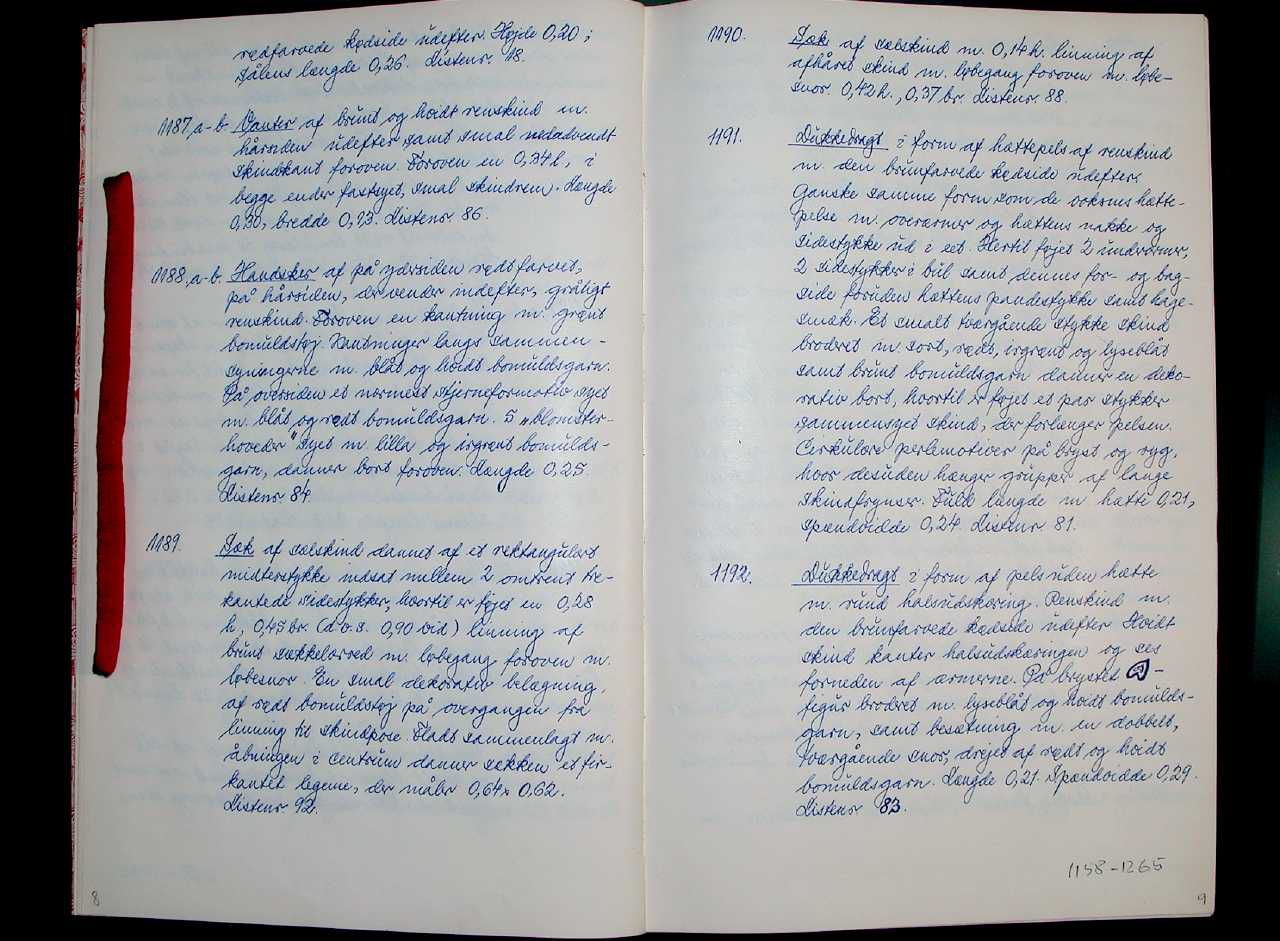 rødfarvede kødside udefter. Højde 0,20;
sålens længde 0,26. Listenr. 18.
1187,a-b. Vanter af brunt og hvidt renskind m.
hårsiden udefter samt smal nedadvendt
skindkant foroven. Foroven en 0,34 l, i
begge ender fastsyet, smal skindrem. Længde
0,30, bredde 0,13. Listenr. 86.
1188,a-b. Handsker af på ydersiden rødtfarvet,
på hårsiden, der vender indefter, gråligt
renskind. Foroven en kantning m. grønt
bomuldstøj. Kantninger langs sammen-
syningerne m. blåt og hvidt bomuldsgarn.
På oversiden et nærmest stjerneformotiv syet
m. blåt og rødt bomuldsgarn. 5 „blomster-
hoveder" syet m. lilla og irgrønt bomulds-
garn, danner bort foroven. Længde 0,25.
Listenr. 84.
1189. Sæk af sælskind dannet af et rektangulært
midterstykke indsat mellem 2 omtrent tre-
kantede sidestykker, hvortil er føjet en 0,28
h, 0,45 br. (d.v.s. 0,90 vid) linning af
brunt sækkelærred m. løbegang foroven m.
løbesnor. En smal dekorativ belægning,
af rødt bomuldstøj på overgangen fra
linning til skindpose. Fladt sammenlagt m.
åbningen i centrum danner sækken et fir-
kantet legeme, der måler 0,64 x 0,62.
Listenr. 92.
8
1190. Sæk af sælskind m. 0,14 h. linning af
afhåret skind m. løbegang foroven m. løbe-
snor. 0,42 h., 0,37 br. Listenr. 88.
1191. Dukkedragt i form af hættepels af renskind
m. den brunfarvede kødside udefter.
Ganske samme form som de voksnes hætte-
pelse m. overærmer og hættens nakke og
sidestykke ud i eet. Hertil føjet 2 underærmer,
2 sidestykker i bul samt dennes for- og bag-
side foruden hættens pandestykke samt hage-
smæk. Et smalt tværgående stykke skind
broderet m. sort, rødt, irgrønt og lyseblåt
samt brunt bomuldsgarn danner en deko-
rativ bort, hvortil er føjet et par stykker
sammensyet skind, der forlænger pelsen.
Cirkulære perlemotiver på bryst og ryg,
hvor desuden hænger grupper af lange
skindfrynser. Fuld længde m. hætte 0,21,
spændvidde 0,24. Listenr. 81.
1192. Dukkedragt i form af pels uden hætte
m. rund halsudskæring. Renskind m.
den brunfarvede kødside udefter. Hvidt
skind kanter halsudskæringen og ses
forneden af ærmerne. På brystet -
figur broderet m. lyseblåt og hvidt bomulds-
garn, samt besætning m. en dobbelt,
tværgående snor, drejet af rødt og hvidt
bomuldsgarn. Længde 0,21. Spændvidde 0,29.
Listenr. 83.
1158-1265
9